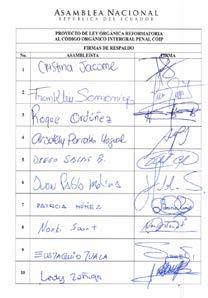 ASAMBLEA NACIONAL
REPÚBLICA DEL ECUADOR
PROYECTO DE LEY ORGÁNICA REFORMATORIA
AL CÓDIGO ORGÁNICO INTERGRAL PENAL COIP
FIRMAS DE RESPALDO
No. ASAMBLEÍSTA FIRMA
1 Cristina Jacome
2 Franklin Samaniego
3 Roque Ordóñez
4
5 DIEGO SALAS B.
6 Juan Pablo Molina
7 PATRICIA NÚÑEZ
8
9 EUSTAQUIO TUALA
10 Ledy Zúñiga